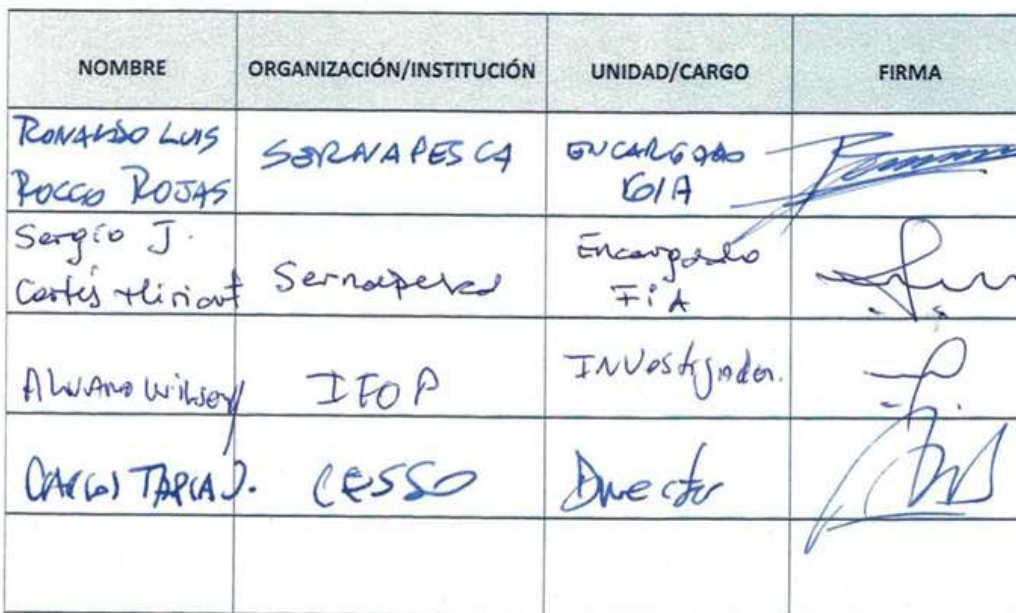 NOMBRE ORGANIZACIÓN/INSTITUCIÓN UNIDAD/CARGO FIRMA
RONALDO LUIS
ROCCO ROJAS
SERNAPESCA
ENCARGADO
Sergio J.
Cortés Hiriart
Sernapesca
Encargado
FIA
Alvaro Wilson
IFOP
Investigador.
CARLOS TAPIA J.
CESSO
Director